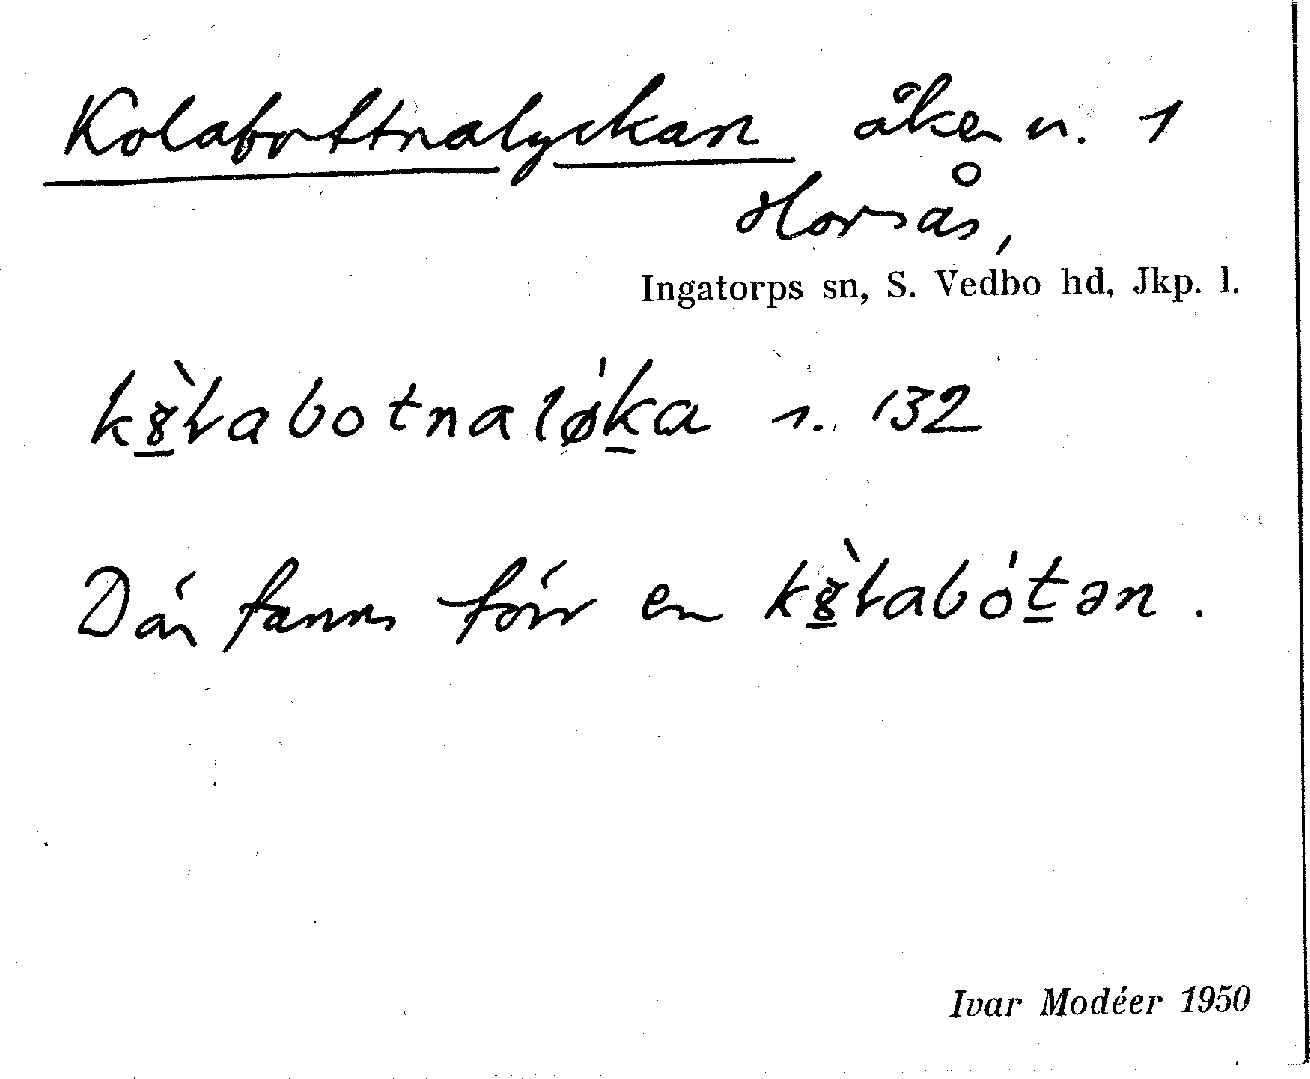 Kolabottnalyckan åker n. 1
Horsås,
Ingatorps sn, S. Vedbo hd, Jkp. l.
kȣ̠̀ɫabotnaløḱ̠a n. 132
Där fanns förr en kȣ̠̀ɫabót̠ən.
Ivar Modéer 1950